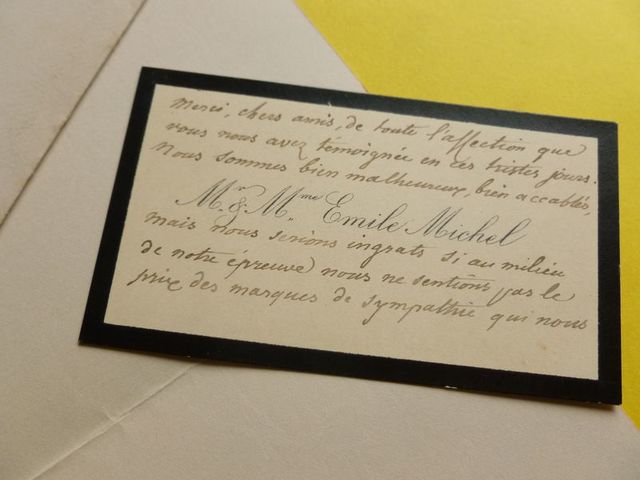 Merci, chers amis, de toute l'affection que
vous nous avez témoignée en ces tristes jours.
Nous sommes bien malheureux, bien accablés,
Mr. & Mme. Emile Michel
mais nous serions ingrats si au milieu
de notre épreuve nous ne sentions pas le
prix des marques de sympathie qui nous